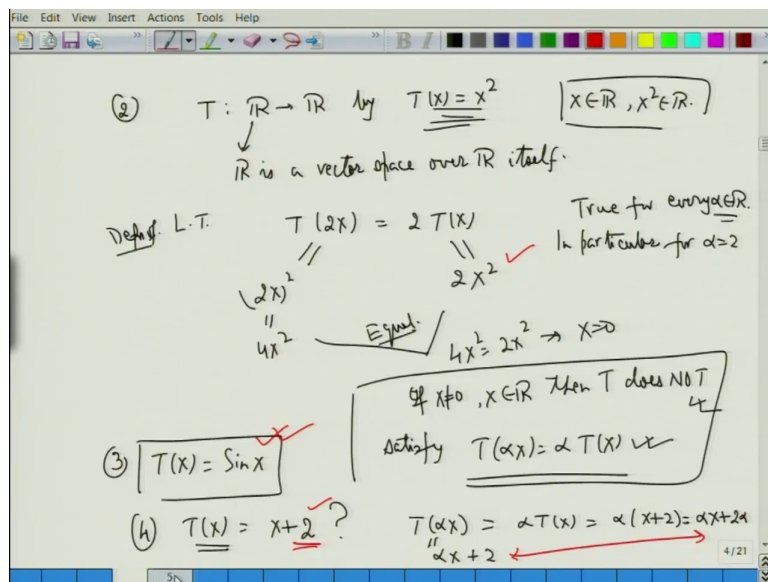 File Edit View Insert Actions Tools Help
② T : ℝ → ℝ by T(x) = x² x∈ℝ, x²∈ℝ.
ℝ is a vector space over ℝ itself.
Defn of L.T. T(2x) = 2 T(x) True for every α∈ℝ.
In particular for α=2
(2x)² 2x²
4x² Equal. 4x² = 2x² → x=0
If x≠0, x∈ℝ then T does NOT
satisfy T(αx) = α T(x)
③ T(x) = Sin x
④ T(x) = x+2 ? T(αx) = αT(x) = α(x+2) = αx+2α
αx+2
4/21
5